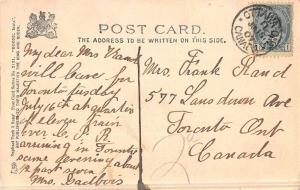 POST CARD.
THE ADDRESS TO BE WRITTEN ON THIS SIDE.
CANADA
My dear Mrs
will leave for
Toronto tuesday
July 16th at quarter
of eleven train
over C. P. R
arriving in Toronto
same evening about
1/2 past seven
Mrs.
Mrs. Frank Rand
577 Lansdown Ave
Toronto Ont
Canada